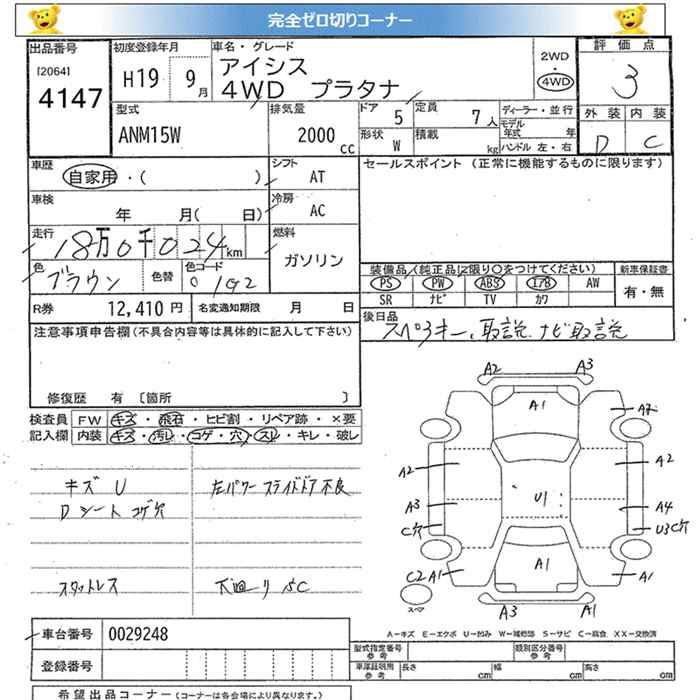 完全ゼロ切りコーナー
出品番号
[2064]
4147
初度登録年月
H19 9月
車名・グレード
アイシス
4WD プラタナ
2WD
4WD
評価点
3
外装 内装
D C
型式
ANM15W
排気量
2000 cc
ドア 5
定員 7人
形状 W
積載 kg
ディーラー・並行
モデル年式 年
ハンドル 左・右
車歴
自家用・( )
シフト
AT
車検
年 月( 日)
冷房
AC
走行
18万0千024km
燃料
ガソリン
色
ブラウン
色替
色コード
R券 12,410円
名変通知期限 月 日
セールスポイント (正常に機能するものに限ります)
装備品(純正品に限り○をつけてください)
PS PW ABS エアB AW
SR ナビ TV カワ
新車保証書
有・無
後日品
スペアキー、取説、ナビ取説
注意事項申告欄(不具合内容等は具体的に記入して下さい)
修復歴 有 [箇所 ]
検査員記入欄
FW キズ・飛石・ヒビ割・リペア跡・×要
内装 キズ・汚レ・コゲ・穴・スレ・キレ・破レ
キズ U
Dシート コゲ穴
左パワースライドドア不良
スタットレス
下廻りSC
A2 A3
A1
A2
A2 A2
U1
A3 A4
C穴 U3 C穴
A1
C2 A1 A1
スペア
A3 A1
A-キズ E-エクボ U-凹み W-補修跡 S-サビ C-腐食 XX-交換済
車台番号 0029248
登録番号
型式指定番号 参考
類別区分番号 参考
車庫証明用 参考
長さ cm 幅 cm 高さ cm
希望出品コーナー (コーナーは各会場により異なります。)